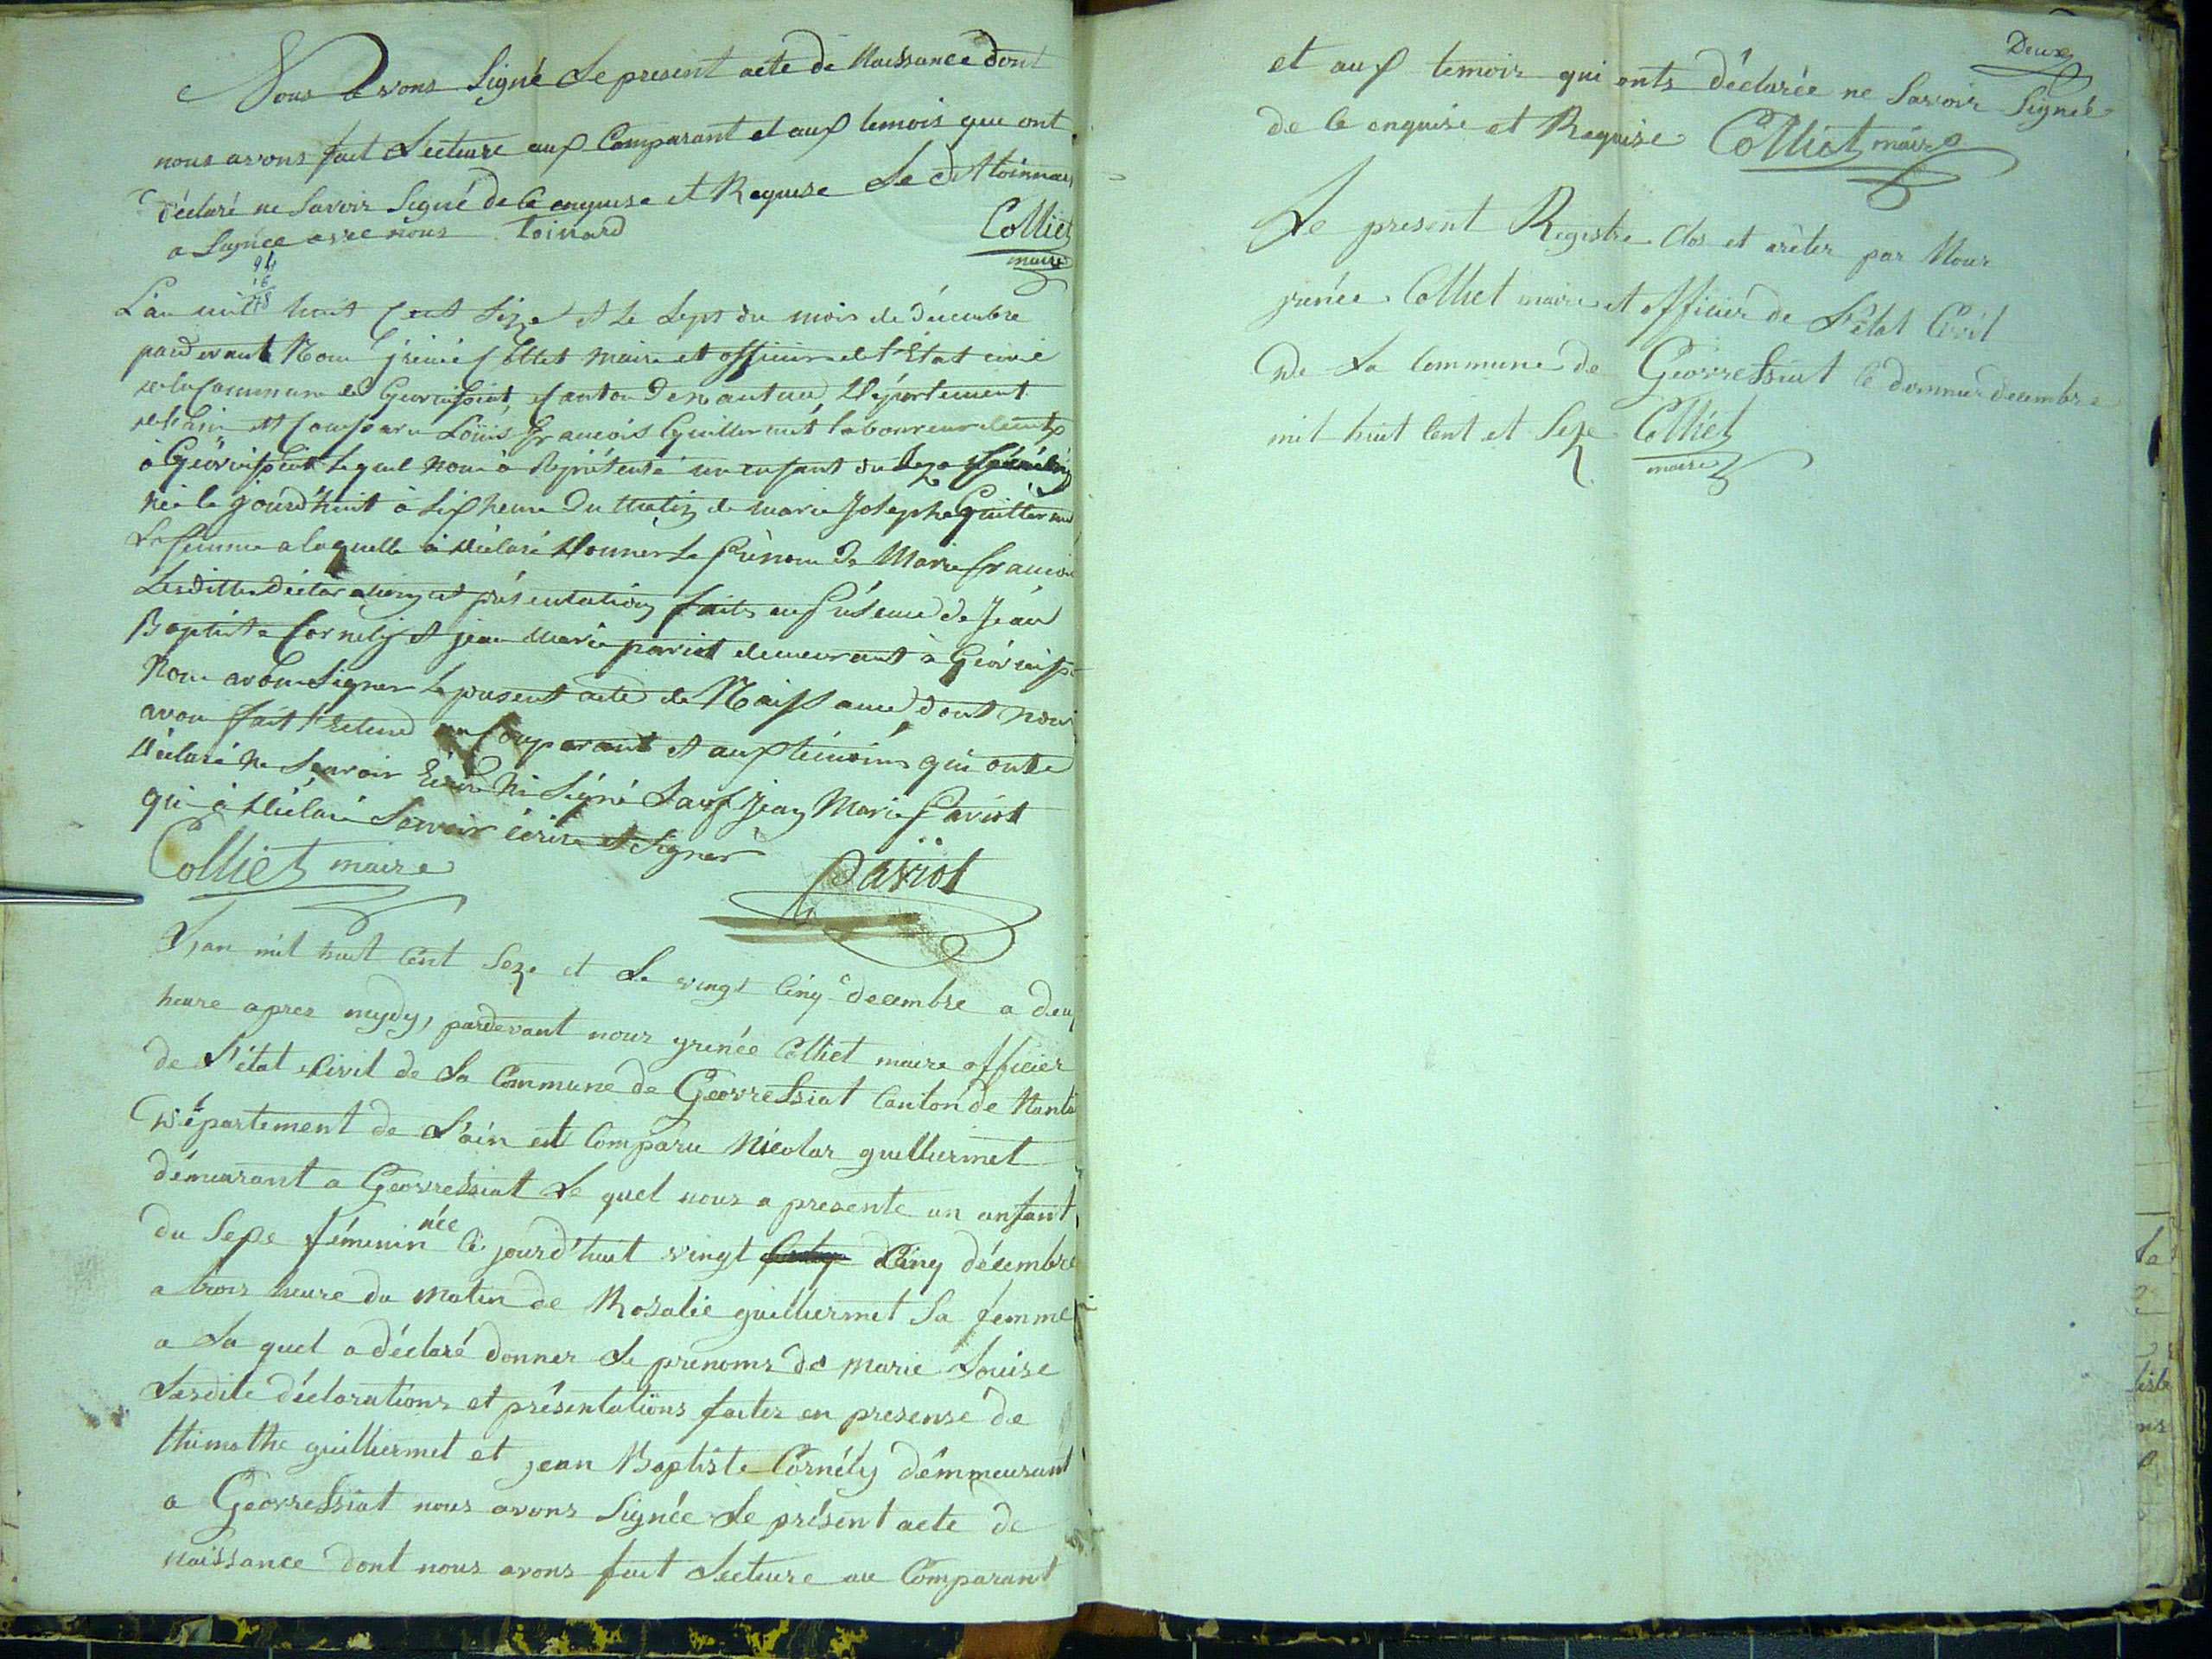 Nous avons Signé Le present acte de Naissance dont
nous avons fait Lecture aux Comparant et aux temois que ont
déclaré ne Savoir Signé de ce enquise et Requise Le dt toinnard
a Signée avec nous toinard
Colliet
maire
L'an mil huit Cent Seze et le Sept du mois de décembre
pardevant Nous jrinié Colliet maire et officier de l'Etat civil
de la Commune de Géovreissiat, Canton de nantua, Département
de l'ain est Comparu Loüis françois Guillermét laboureur demt
à Géovreissiat Lequel nous à Représenté un enfant du Sexe féminin
née le jourd'huit à Six heure du Matin de marie Josephe Guillermet
Sa femme a laquelle à déclaré Donner le Prénom de Marie françoise
Lesditte Déclaration et présentation faits en présence de Jean
Baptiste Cornelij et jean Marie pariot demeurant à Géovreiss
Nous avons Signer le présent acte de Naissance dont nous
avons fait Lecture au Comparant et aux témoins qui onte
Déclaré ne Scavoir Ecrire Ni Signé Sauf Jean Marie Pariot
qui à Déclaré Scavoir écrire et Signer
Colliet maire
Pariot
L'an mil huit Cent Seze et Le vingt Cinq decembre a deux
heure aprez mydy, pardevant nous yrenée Colliet maire officier
de L'état Civil de La Commune de Geovressiat Canton de Nantua
Département de L'ain est Comparu Nicolas guilliermet
démeurant a Geovressiat Le quel nous a presente un anfant
du Sexe féminin née Ce jourd'huit vingt Cinq décembre
a trois heure du Matin de Rosalie guilliermet Sa femme
a La quel a déclaré donner Le prenoms de marie Louise
Lesdite déclarations et présentations faites en presense de
thimothe guilliermet et jean Baptiste Cornély démmeurant
a Geovressiat nous avons Signée Le présent acte de
naissance dont nous avons fait Lecture au Comparant
Deux
et aux temoir qui onts déclarée ne Savoir Signée
de Ce enquise et Requise Colliet maire
Le present Registre Clos et arèter par Nous
yrenée Colliet maire et officier de L'état Civil
de La Commune de Géovressiat le dernier decembre
mil huit Cent et Seze Colliet
maire